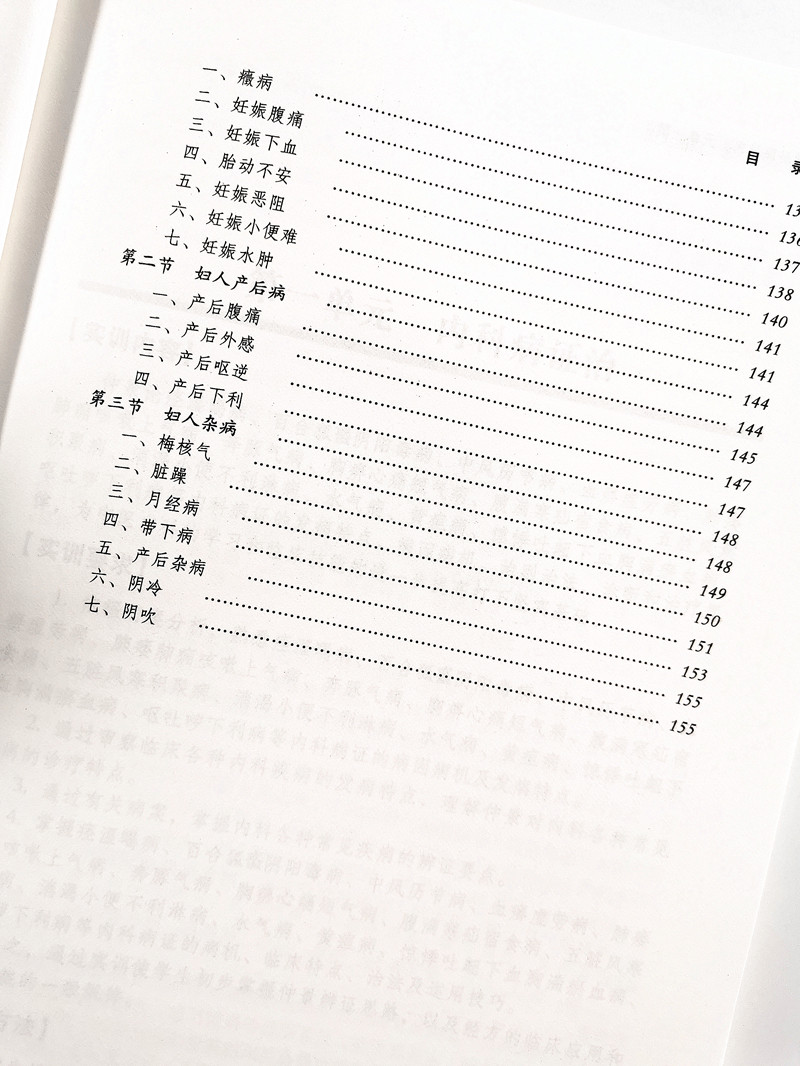 目 录
一、癥病 ……………… 13
二、妊娠腹痛 ……………… 136
三、妊娠下血 ……………… 137
四、胎动不安 ……………… 138
五、妊娠恶阻 ……………… 140
六、妊娠小便难 ……………… 141
七、妊娠水肿 ……………… 141
第二节 妇人产后病 ……………… 144
一、产后腹痛 ……………… 144
二、产后外感 ……………… 145
三、产后呕逆 ……………… 147
四、产后下利 ……………… 147
第三节 妇人杂病 ……………… 148
一、梅核气 ……………… 148
二、脏躁 ……………… 149
三、月经病 ……………… 150
四、带下病 ……………… 151
五、产后杂病 ……………… 153
六、阴冷 ……………… 155
七、阴吹 ……………… 155